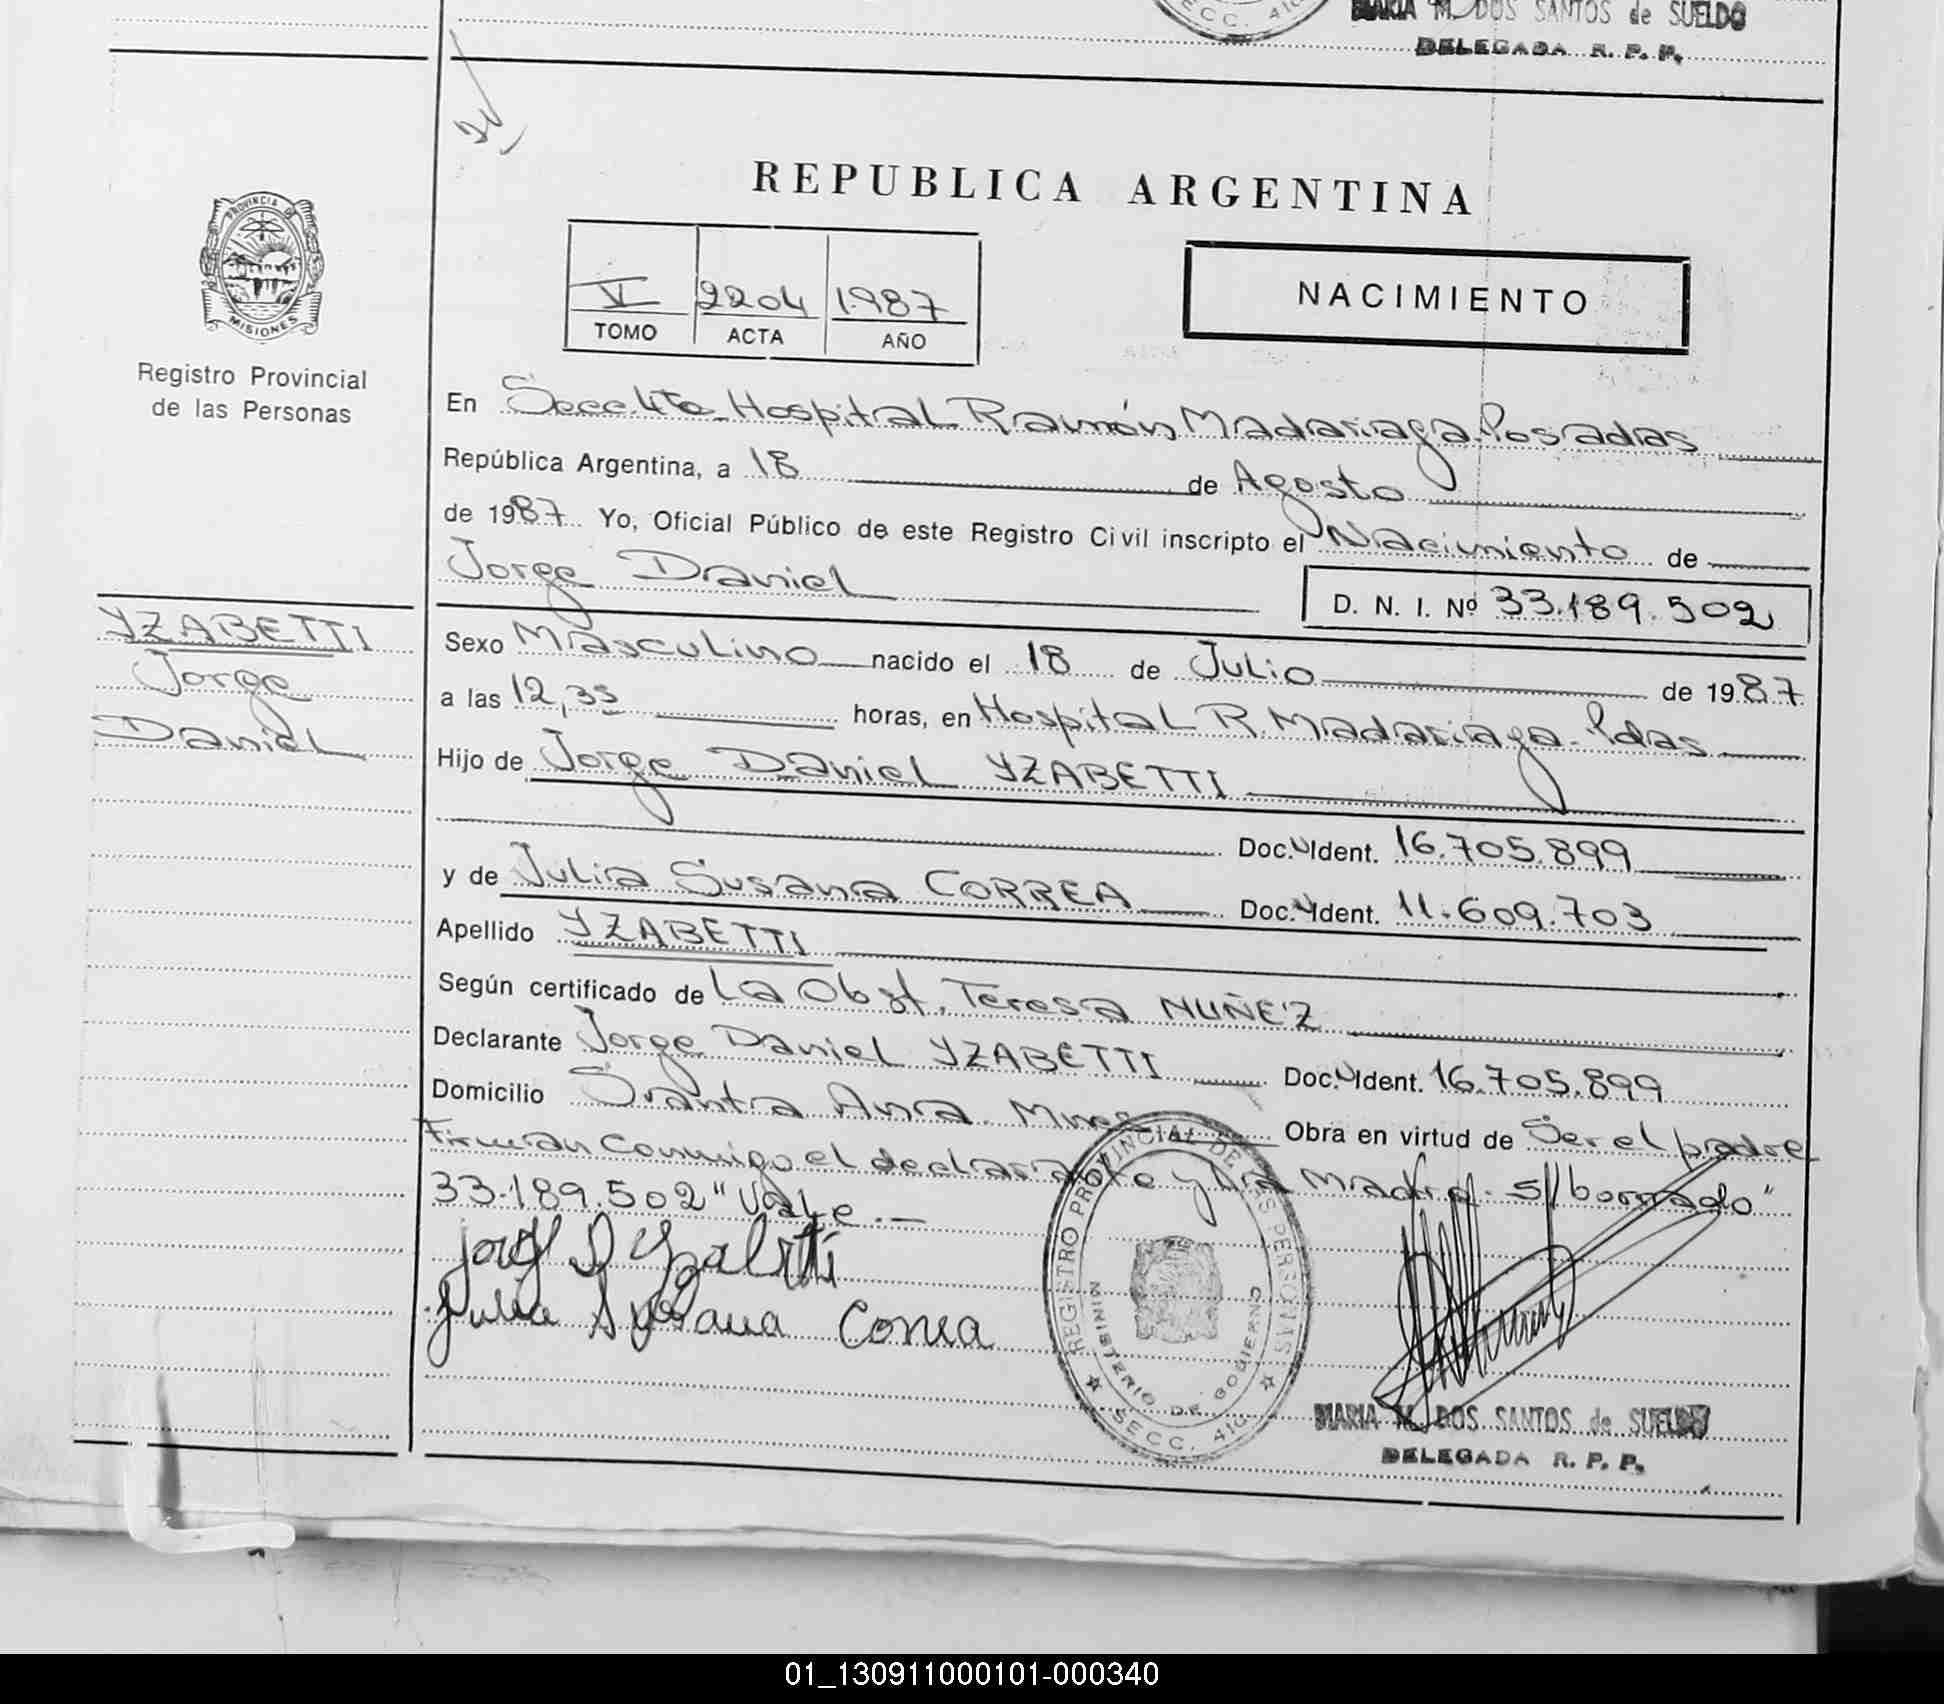 SECC. 41
MARIA M. DOS SANTOS de SUELDO
DELEGADA R. P. P.
REPUBLICA ARGENTINA
PROVINCIA DE
MISIONES
Registro Provincial
de las Personas
V 2204 1987
TOMO ACTA AÑO
NACIMIENTO
En Secc. 4ta Hospital Ramón Madariaga. Posadas
República Argentina, a 18 de Agosto
de 1987. Yo, Oficial Público de este Registro Civil inscripto el Nacimiento de
Jorge Daniel D. N. I. Nº 33.189.502
YZABETTI
Jorge
Daniel
Sexo Masculino nacido el 18 de Julio de 1987
a las 12,35 horas, en Hospital R. Madariaga. Pdas
Hijo de Jorge Daniel YZABETTI
Doc. Ident. 16.705.899
y de Julia Susana CORREA Doc. Ident. 11.609.703
Apellido YZABETTI
Según certificado de La Obst. Teresa NUÑEZ
Declarante Jorge Daniel YZABETTI Doc. Ident. 16.705.899
Domicilio Santa Ana. Mnes Obra en virtud de Ser el padre
Firman Conmigo el declarante y la Madre. s/ borrado"
33.189.502 "Vale.—
Jorge D Yzabetti
Julia Susana Correa
REGISTRO PROVINCIAL DE LAS PERSONAS
MINISTERIO DE GOBIERNO
SECC. 41
MARIA M. DOS SANTOS de SUELDO
DELEGADA R. P. P.
01_130911000101-000340